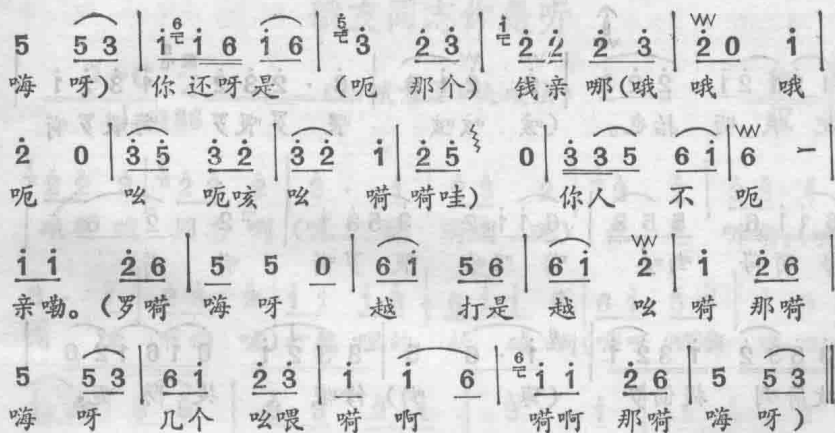 5 5 3 | i 6 i 6 i 6 | 5 3 2 3 | i 2 2 2 3 | 2 0 i |
嗨 呀） 你还呀是 （呃 那个） 钱亲 哪（哦 哦 哦
2 0 | 3 5 3 2 | 3 2 i | 2 5 0 | 3 3 5 6 i | 6 － |
呃 吆 呃咳 吆 嗬 嗬哇） 你人 不 呃
i i 2 6 | 5 5 0 | 6 i 5 6 | 6 i 2 | i 2 6 |
亲嘞。（罗嗬 嗨 呀 越 打是 越 吆 嗬 那嗬
5 5 3 | 6 i 2 3 | i i 6 | 6 i i 2 6 | 5 5 3 ‖
嗨 呀 几个 吆喂 嗬 啊 嗬啊 那嗬 嗨 呀）